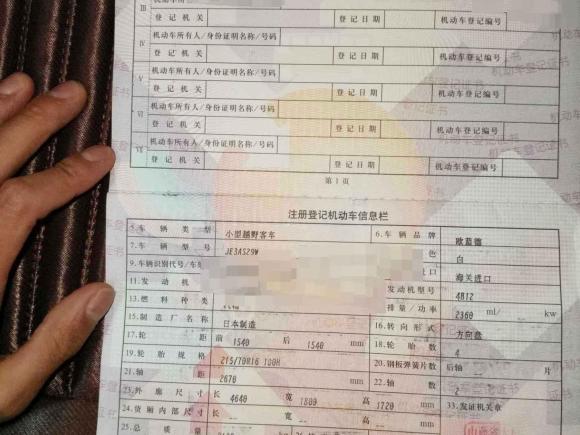 III
登记机关 登记日期 机动车登记编号
机动车所有人/身份证明名称/号码
IV
登记机关 登记日期 机动车登记编号
机动车所有人/身份证明名称/号码
V
登记机关 登记日期 机动车登记编号
机动车所有人/身份证明名称/号码
VI
登记机关 登记日期 机动车登记编号
机动车所有人/身份证明名称/号码
VII
登记机关 登记日期 机动车登记编号
第1页
注册登记机动车信息栏
5.车辆类型 小型越野客车 6.车辆品牌 欧蓝德
7.车辆型号 JE3AS29W 色 白
9.车辆识别代号/车 口 海关进口
11.发动机 发动机型号 4B12
13.燃料种类 排量/功率 2360 ml/ kw
15.制造厂名称 日本制造 16.转向形式 方向盘
17.轮距 前 1540 后 1540 mm 18.轮胎数 4
19.轮胎规格 215/70R16 100H 20.钢板弹簧片数 后轴 片
21.轴距 2670 mm 22.轴数 2
23.外廓尺寸 长 4640 宽 1800 高 1720 mm 33.发证机关章
24.货厢内部尺寸 长 -- 宽 -- 高 -- mm
25.总质量